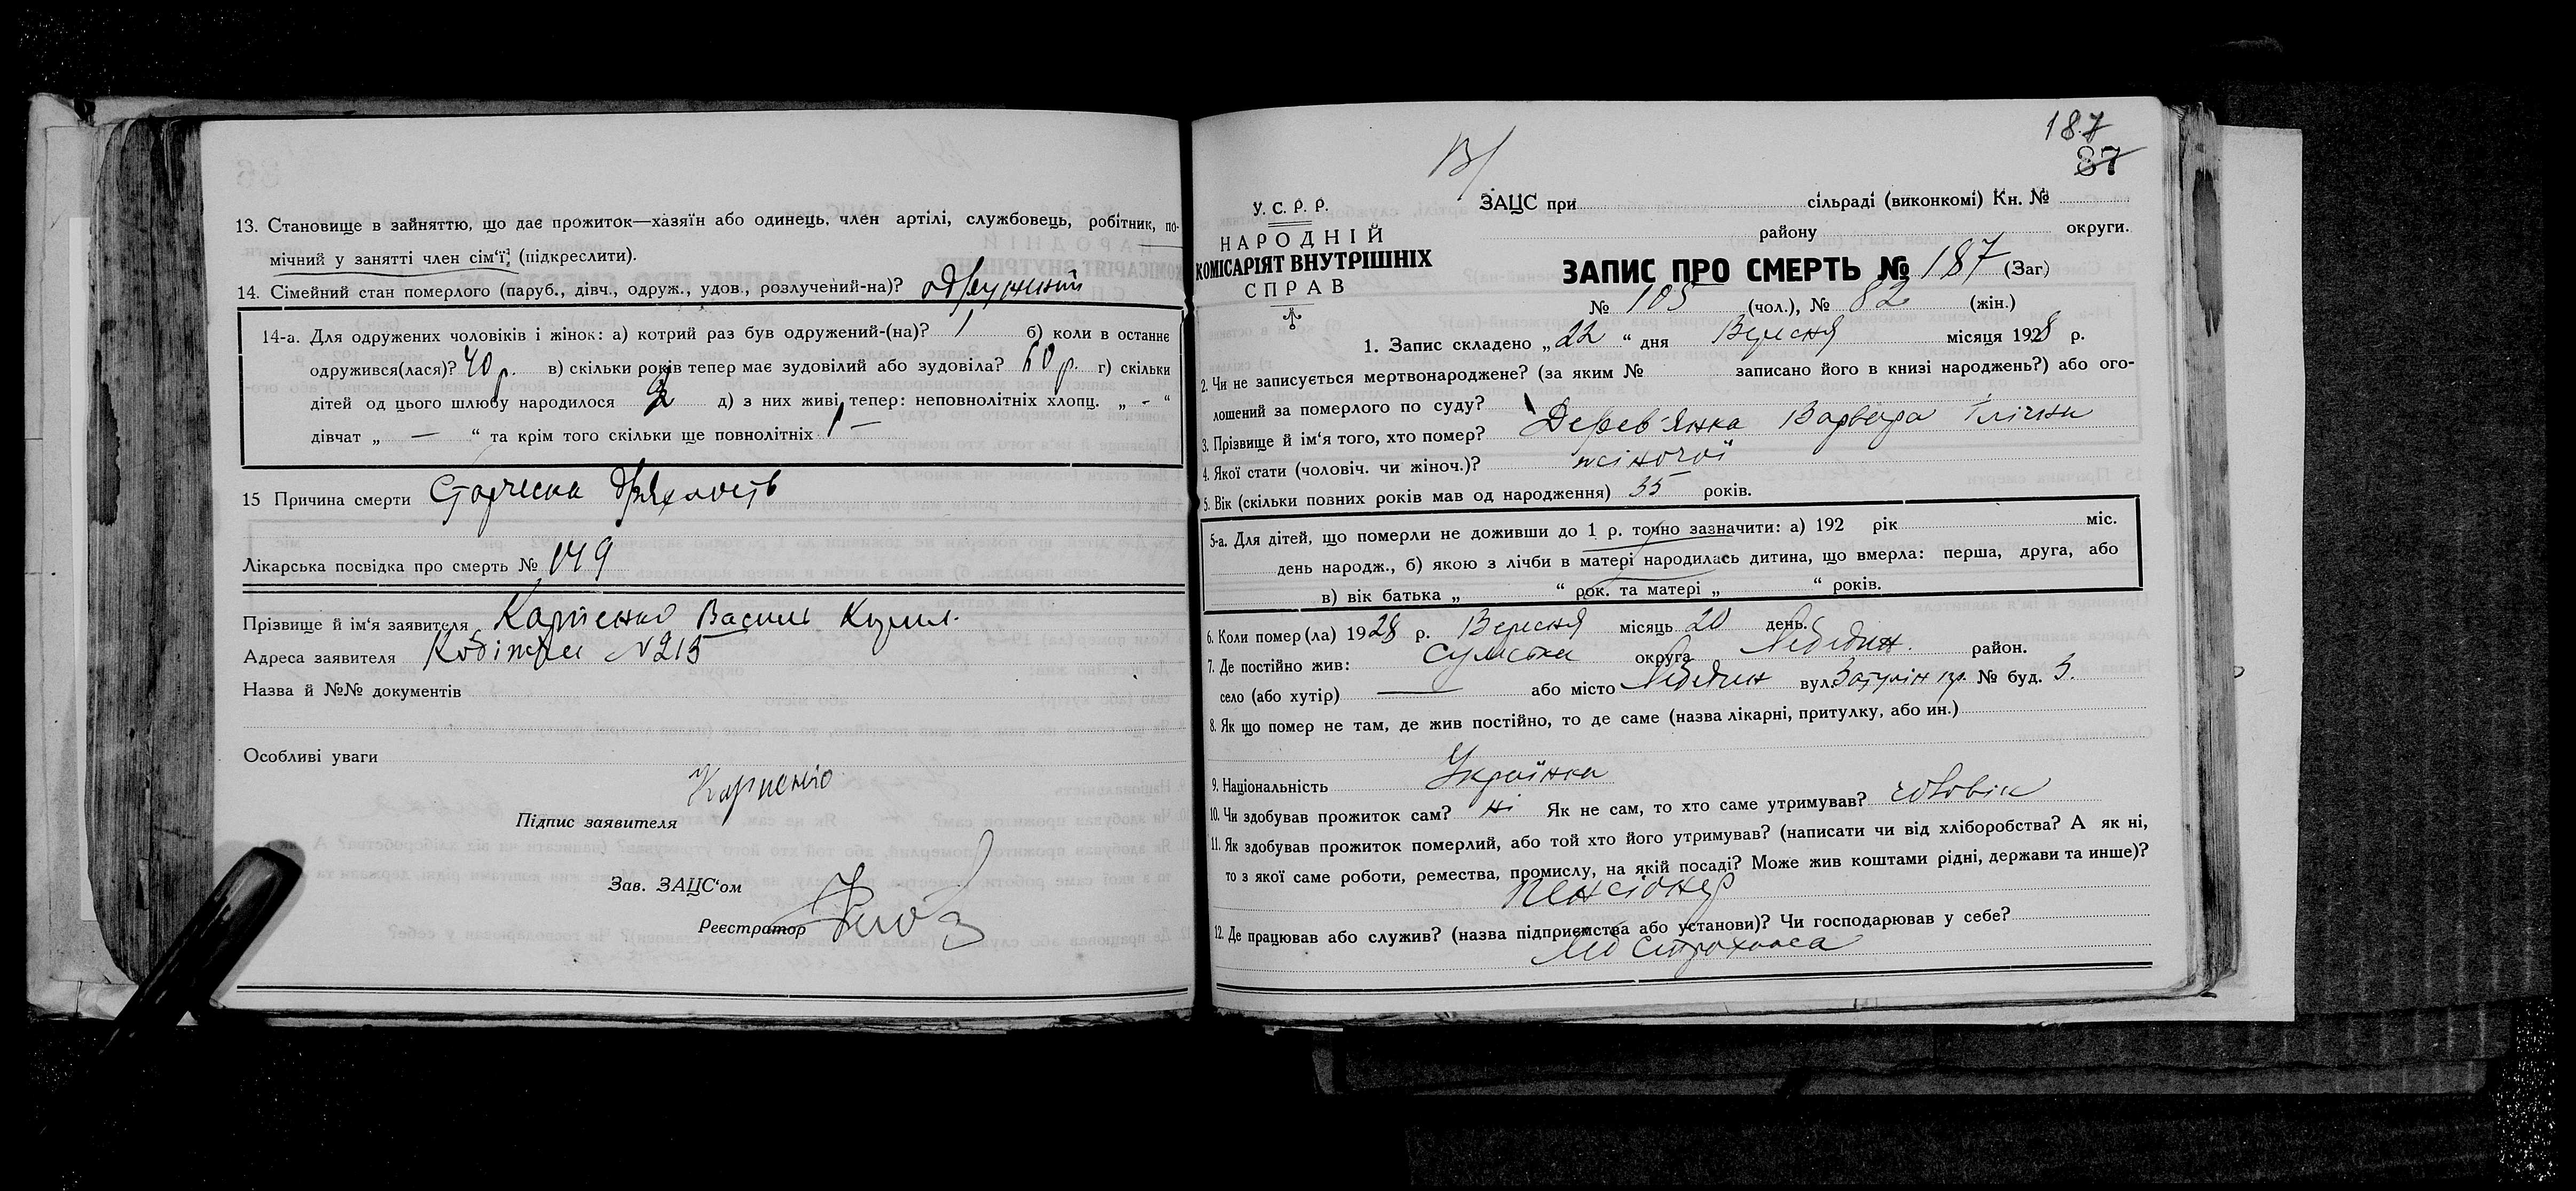 13. Становище в зайняттю, що дає прожиток—хазяїн або одинець, член артілі, службовець, робітник, по-
мічний у занятті член сім‘ї, (підкреслити).
14. Сімейний стан померлого (паруб., дівч., одруж., удов., розлучений-на)? одружений
14-а. Для одружених чоловіків і жінок: а) котрий раз був одружений-(на)? 1 б) коли в останнє
одружився(лася)? 40 р. в) скільки років тепер має зудовілий або зудовіла? 60 р. г) скільки
дітей од цього шлюбу народилося 2 д) з них живі тепер: неповнолітніх хлопц. „ - “
дівчат „ — “ та крім того скільки ще повнолітніх 1 —
15 Причина смерти Старческа дряхлость
Лікарська посвідка про смерть № 149
Прізвище й ім‘я заявителя Карпенко Василь
Адреса заявителя №215
Назва й №№ документів
Особливі уваги
Карпенко
Підпис заявителя
Зав. ЗАЦС‘ом
Реєстратор
187
87
У. С. Р. Р.
НАРОДНІЙ
КОМІСАРІЯТ ВНУТРІШНІХ
СПРАВ
ЗАЦС при сільраді (виконкомі) Кн. №
району округи.
ЗАПИС ПРО СМЕРТЬ № 187 (Заг)
№ 105 (чол.), № 82 (жін.)
1. Запис складено „22 “ дня Вересня місяця 1928 р.
2. Чи не записується мертвонароджене? (за яким № записано його в книзі народжень?) або ого-
лошений за померлого по суду?
3. Прізвище й ім‘я того, хто помер? Дерев'янка Варвара Іллічни
4. Якої стати (чоловіч. чи жіноч.)? жіночої
5. Вік (скільки повних років мав од народження) 55 років.
5-а. Для дітей, що померли не доживши до 1 р. точно зазначити: а) 192 рік міс.
день народж., б) якою з лічби в матері народилась дитина, що вмерла: перша, друга, або
в) вік батька „ “ рок. та матері „ “ років.
6. Коли помер(ла) 1928 р. Вересня місяць 20 день.
7. Де постійно жив: Сумська округа Лебедин. район.
село (або хутір) — або місто Лебедин вул. № буд. 3.
8. Як що помер не там, де жив постійно, то де саме (назва лікарні, притулку, або ин.)
9. Національність Українка
10. Чи здобував прожиток сам? ні Як не сам, то хто саме утримував? чоловік
11. Як здобував прожиток померлий, або той хто його утримував? (написати чи від хліборобства? А як ні,
то з якої саме роботи, ремества, промислу, на якій посаді? Може жив коштами рідні, держави та инше)?
пенсіонер
12. Де працював або служив? (назва підприємства або установи)? Чи господарював у себе?
Леб Страхкаса